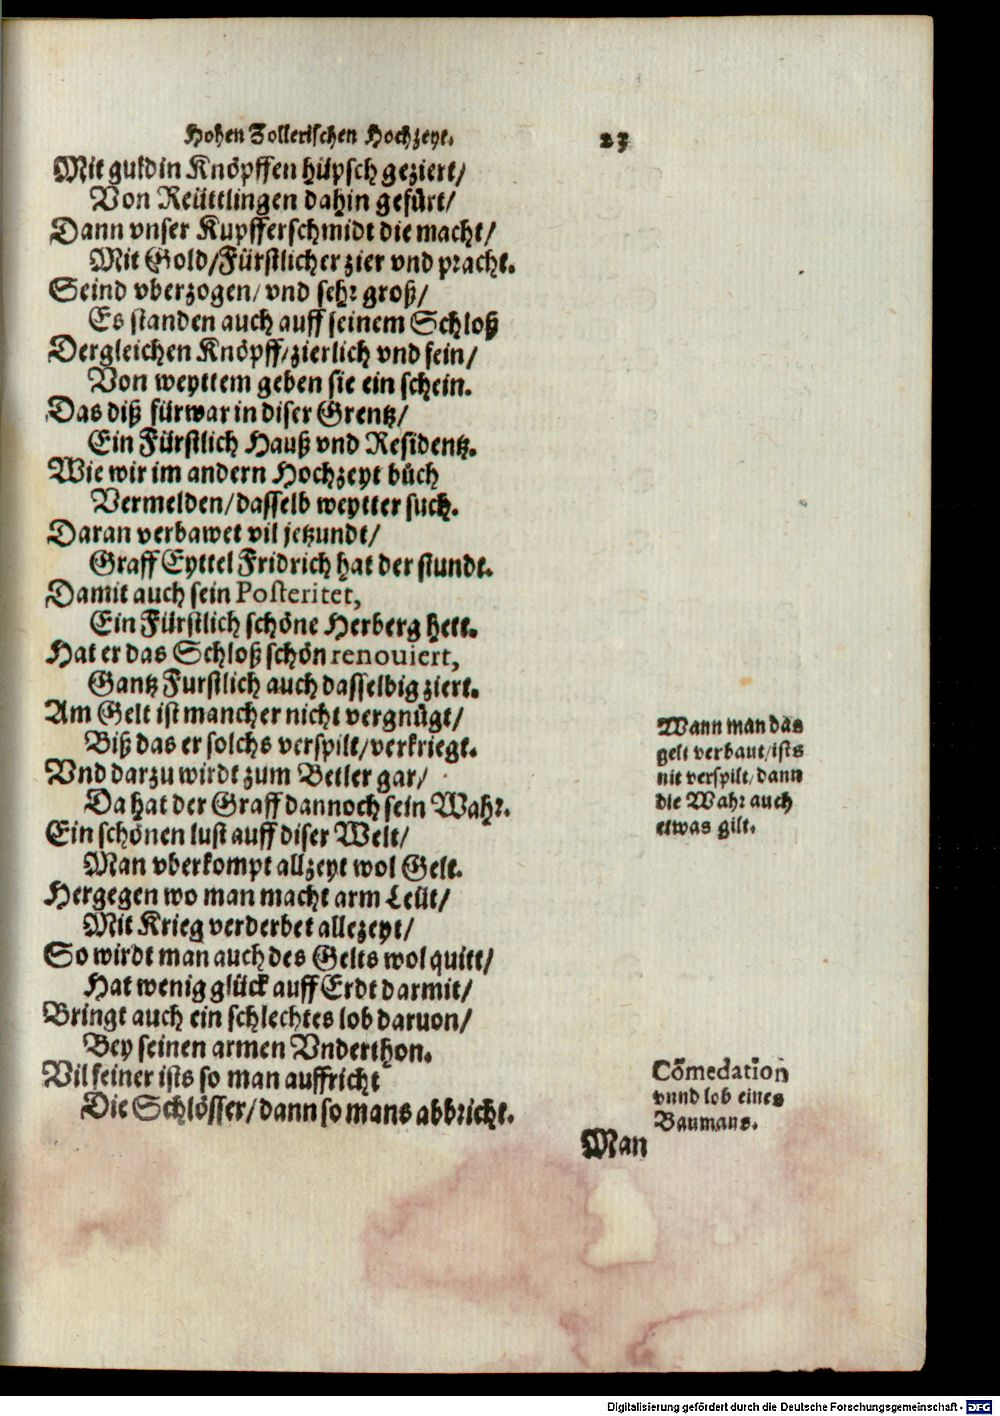 Hohen Zollerischen Hochzeyt. 23
Mit guldin Knöpffen hüpsch geziert/
Von Reüttlingen dahin gefürt/
Dann vnser Kupfferschmidt die macht/
Mit Gold/Fürstlicher zier vnd pracht.
Seind vberzogen/vnd sehr groß/
Es standen auch auff seinem Schloß
Dergleichen Knöpff/zierlich vnd fein/
Von weyttem geben sie ein schein.
Das diß fürwar in diser Grentz/
Ein Fürstlich Hauß vnd Residentz.
Wie wir im andern Hochzeyt bůch
Vermelden/dasselb weytter such.
Daran verbawet vil jetzundt/
Graff Eyttel Fridrich hat der stundt.
Damit auch sein Posteritet,
Ein Fürstlich schöne Herberg hett.
Hat er das Schloß schön renouiert,
Gantz Furstlich auch dasselbig ziert.
Am Gelt ist mancher nicht vergnügt/
Biß das er solchs verspilt/verkriegt.
Vnd darzu wirdt zum Betler gar/
Da hat der Graff dannoch sein Wahr.
Ein schönen lust auff diser Welt/
Man vberkompt allzeyt wol Gelt.
Hergegen wo man macht arm Leüt/
Mit Krieg verderbet allezeyt/
So wirdt man auch des Gelts wol quitt/
Hat wenig glück auff Erdt darmit/
Bringt auch ein schlechtes lob daruon/
Bey seinen armen Vnderthon.
Vil feiner ists so man auffricht
Die Schlösser/dann so mans abbricht.
Wann man das
gelt verbaut/ists
nit verspilt/dann
die Wahr auch
etwas gilt.
Cõmedatiõn
vnnd lob eines
Baumans.
Man
Digitalisierung gefördert durch die Deutsche Forschungsgemeinschaft - DFG